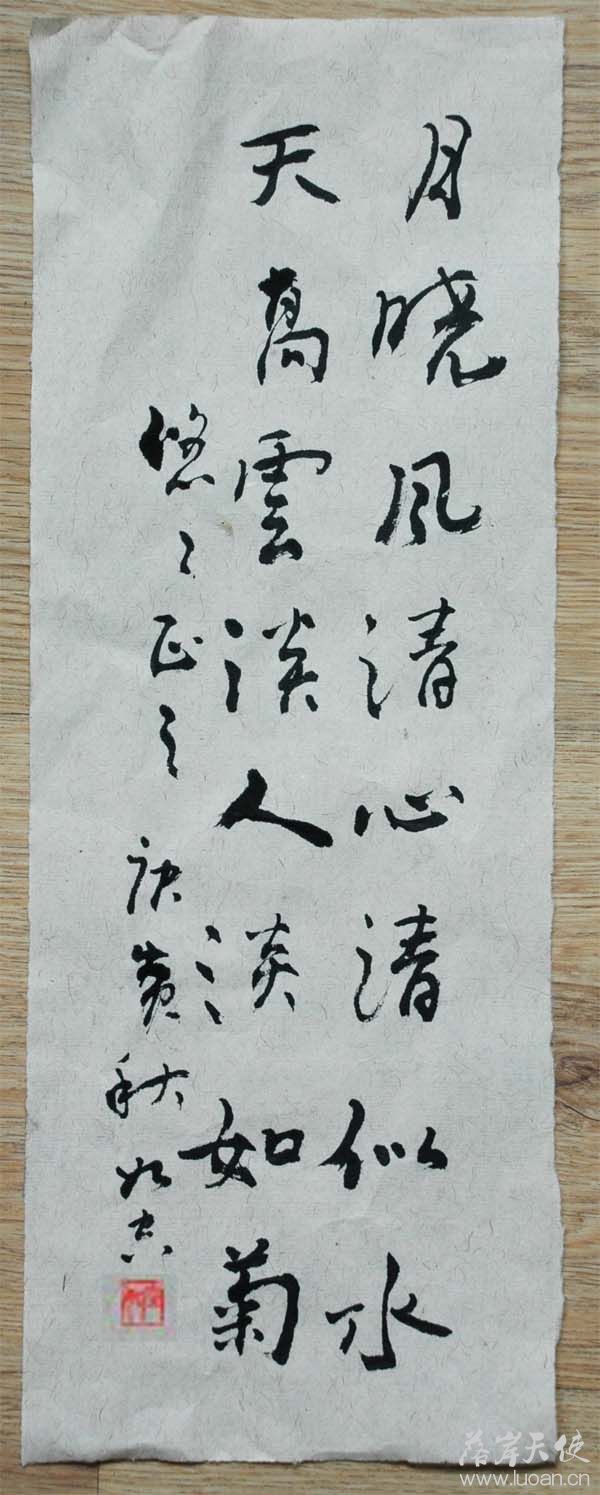 月晓风清心清似水
天高雲淡人淡如菊
悠々正之 庚寅秋
落岸天使
www.luoan.cn